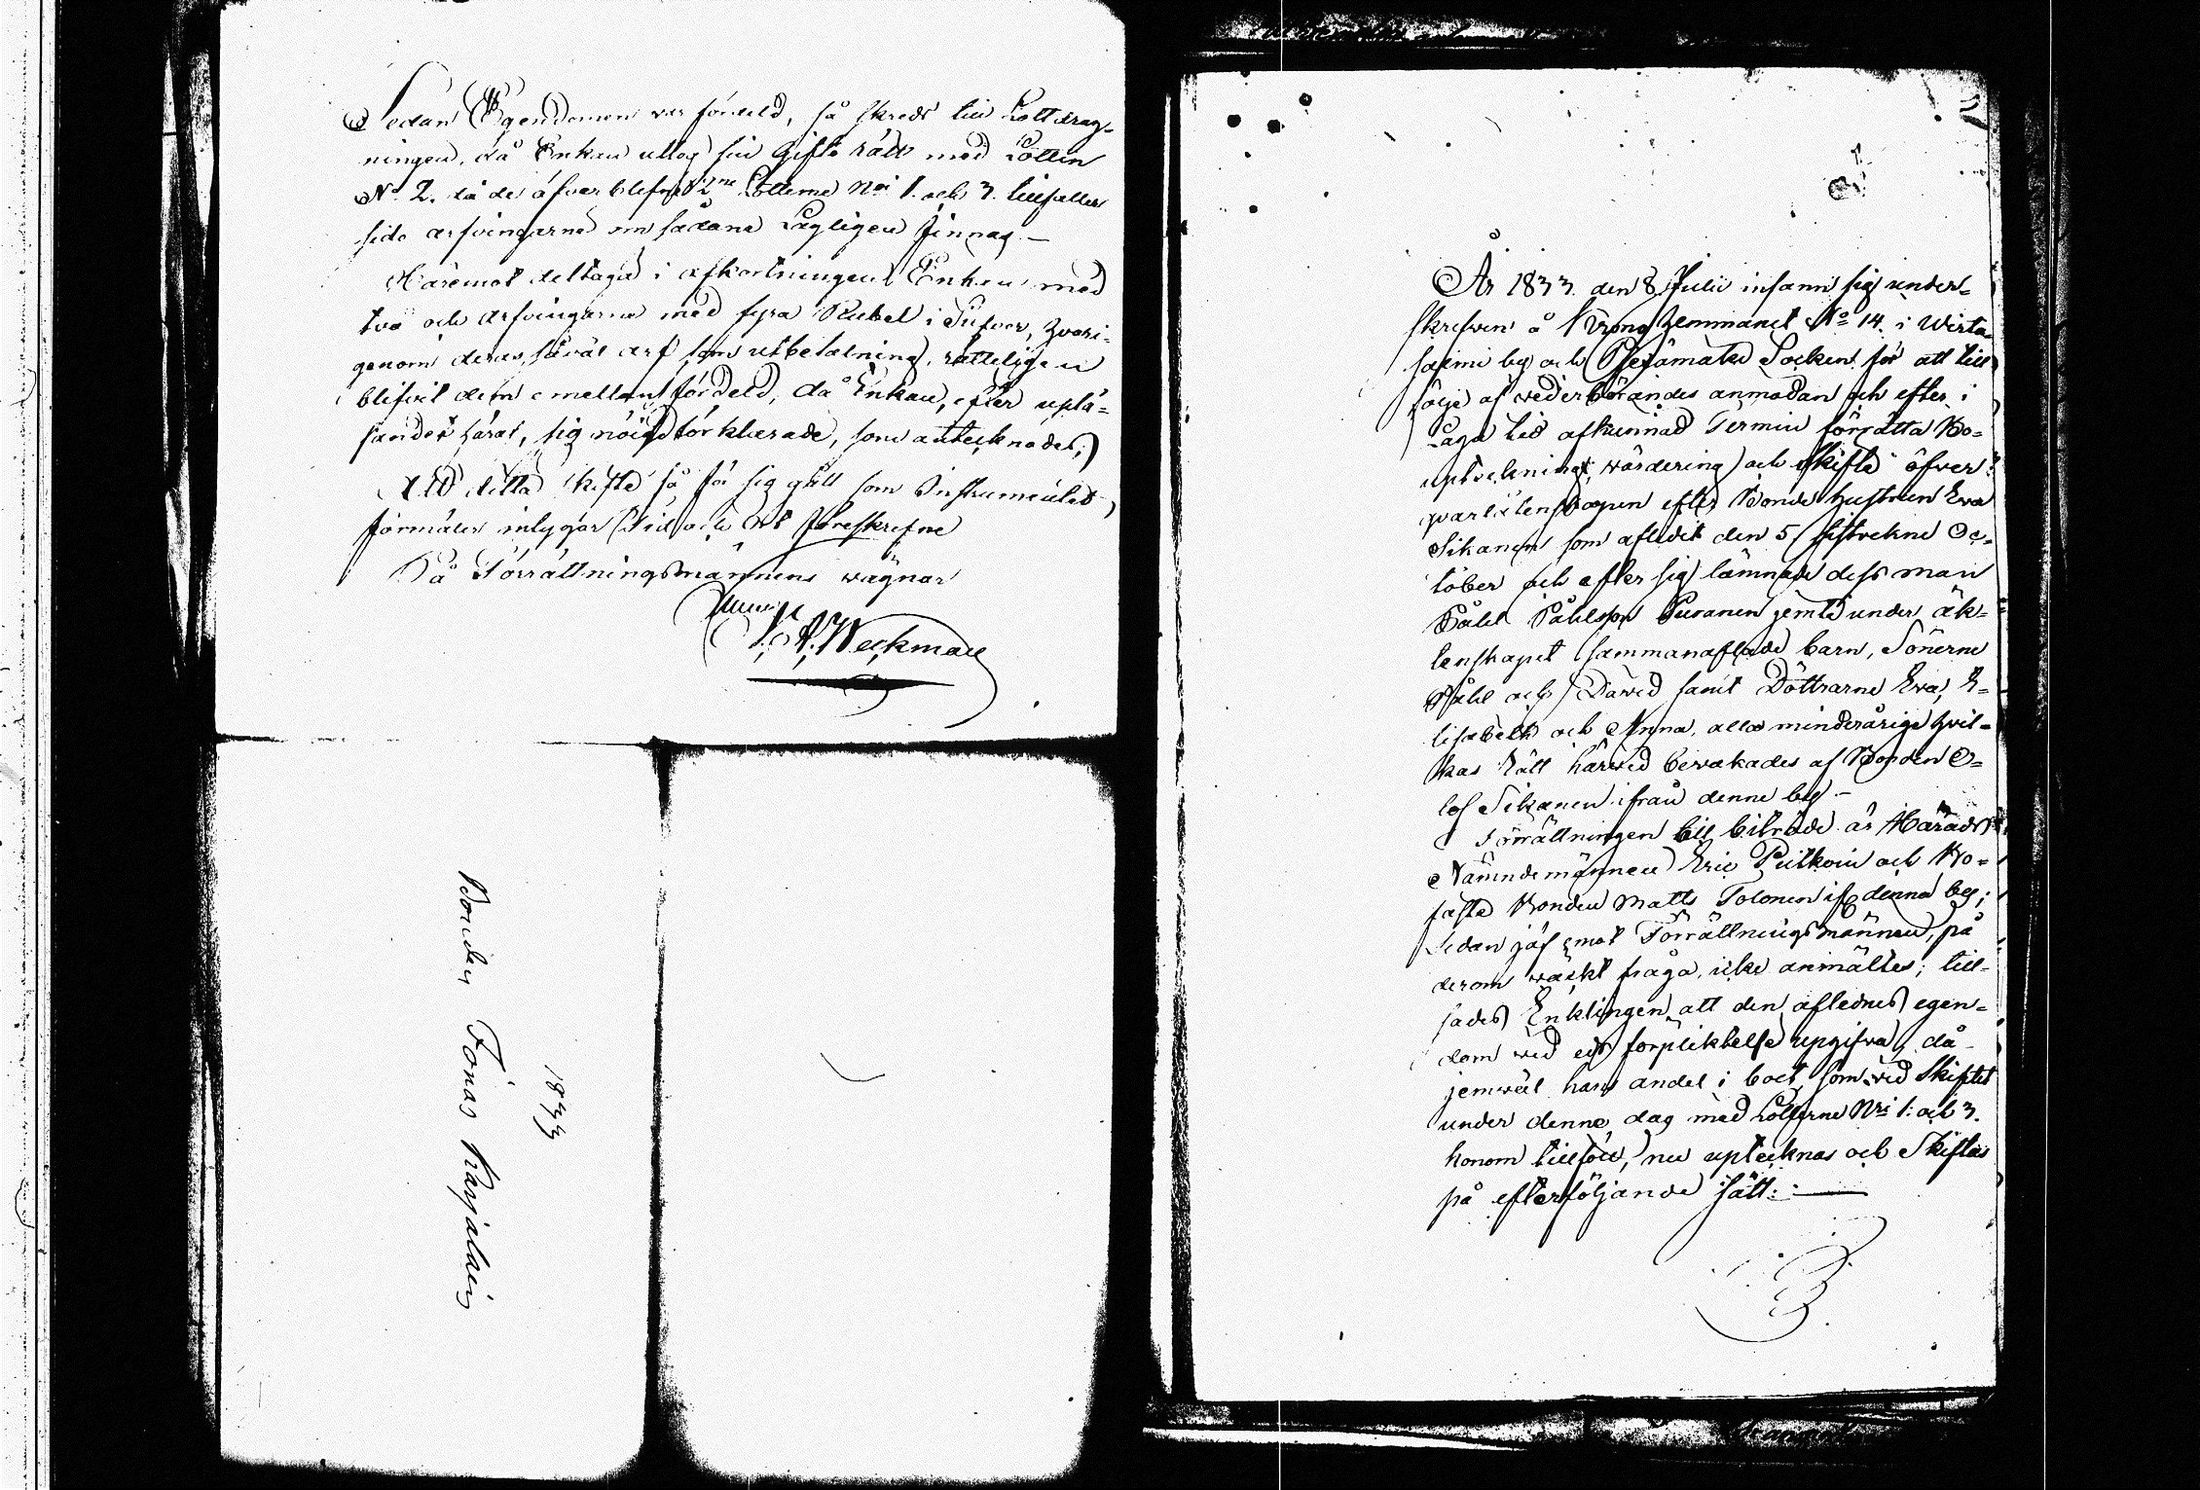 Sedan Egendomen var fördeld, så skreds till Lottdrag-
ningen, då Enkan uttog sin gifto rätt med Lotten
N° 2. då de öfverblefne 2ne Lotterne Nri 1. och 3. tillfaller
sido arfvingarne om sådane Lagligen finnas. —
Häremot deltaga i afkortningen Enkan med
två och Arfvingarne med fyra Rubel i Silfver, hvari-
genom deras såväl arf som utbetalning, rätteligen
blifvit dem emellan fördeld, då Enkan, efter uplä-
sandet häraf, sig nöigd förklarade, som antecknades;
Att detta skifte så för sig gått som Instrumentet
förmäler intygar Tid och Ort föreskrefne
På Förrättningsmännens wägnar
Weckman
Bonden Jonas Karjalain
1833
År 1833. den 8 Julii infann sig under-
skrefven å Krono Hemmanet N° 14. i Wirta-
salmi by och Pjexämäki Socken för att till
följe af wederbörandes anmodan och efter i
Laga tid afkunnad Termin förrätta Bo-
uptekning, wärdering och skifte öfver
qvarlåtenskapen efter Bonde hustrun Eva
Sikanen som afledit den 5 sistvekne Oc-
tober och efter sig lämnade dess man
Påhl Påhlsson Puranen jemte under äk-
tenskapet sammanaflade barn, Sönerne
Påhl och David samt Döttrarne Eva, E-
lisabeth och Anna, alla minderårige hvil-
kas Rätt härwid bevakades af Bonden O-
lof Sikanen ifrån denne by —
Förrättningen till biträde är Härads
Nämndemannen Eric Pulkoin och Bo-
fasta Bonden Matts Tolonen if denna by;
Sedan jäf emot Förrättningsmännen, på
derom wäckt fråga, icke anmältes; till-
sades Enklingen att den aflednes egen-
dom wid eds förpliktelse upgifwa, då
jemwäl hans andel i boet, som wid Skiftet
under denne dag med Lotterne Nri 1: och 3.
honom tillföll, nu uptecknas och Skiftas
på efterföljande sätt: —